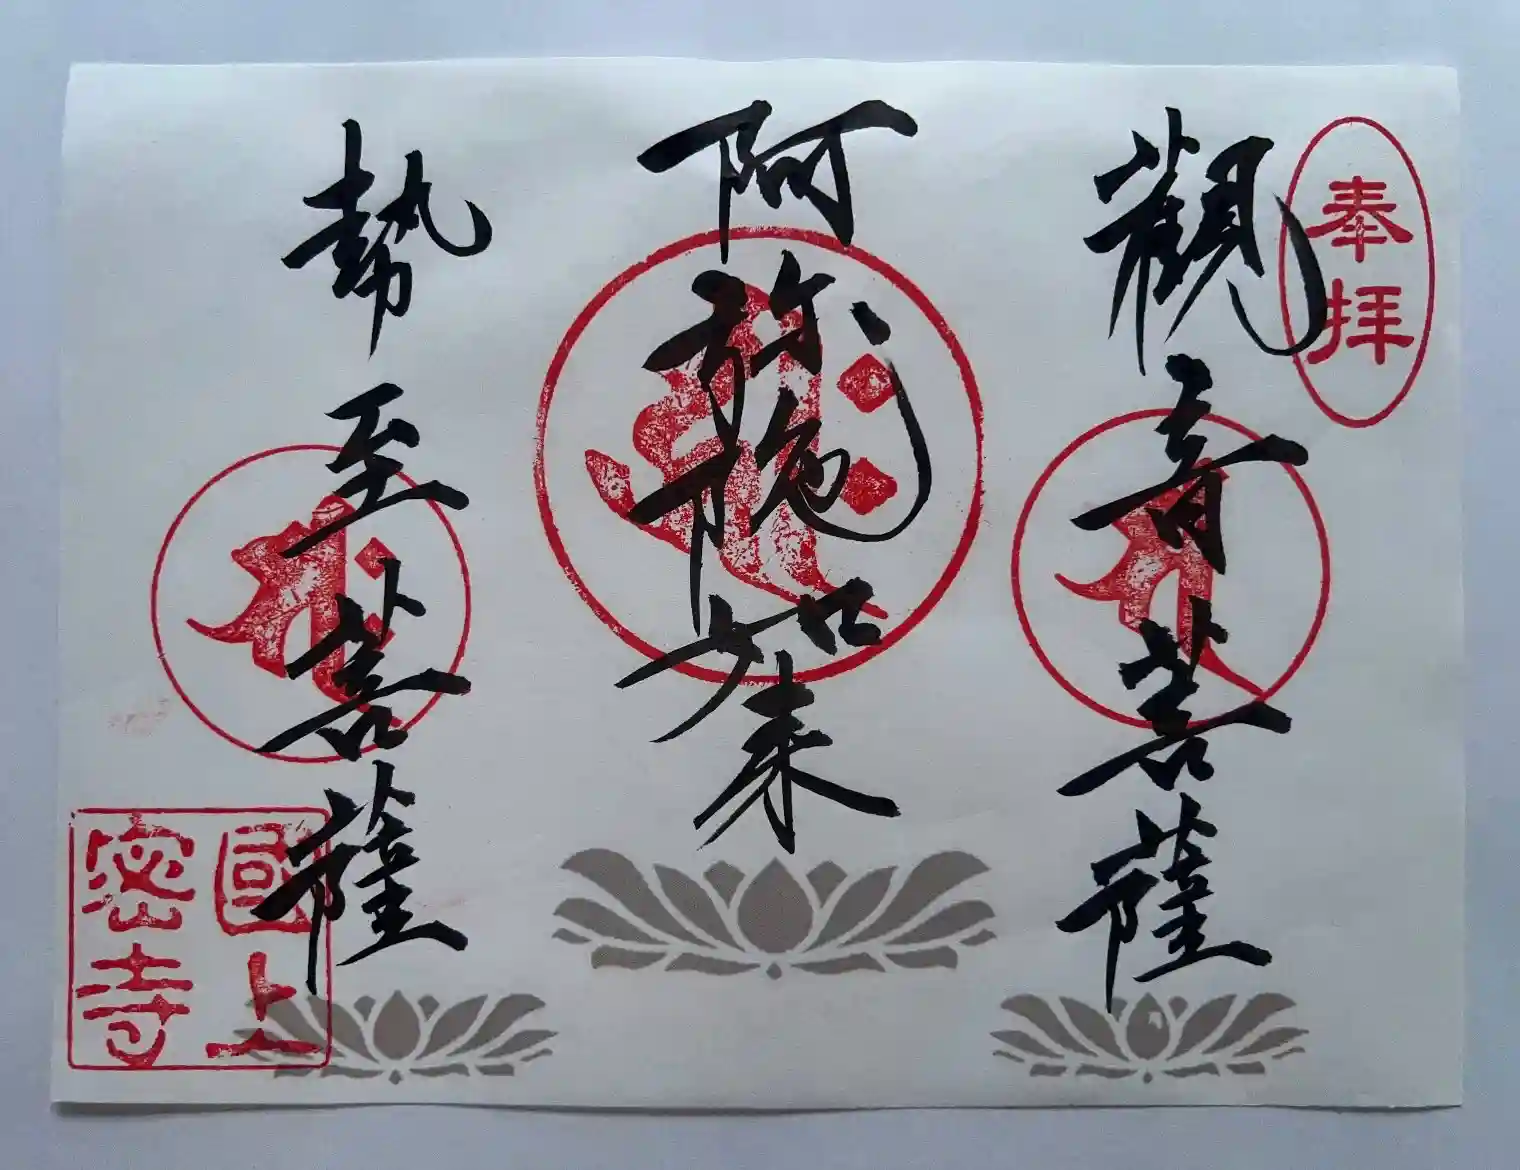 奉拝
觀音菩薩
阿弥陀如来
勢至菩薩
國上
密寺